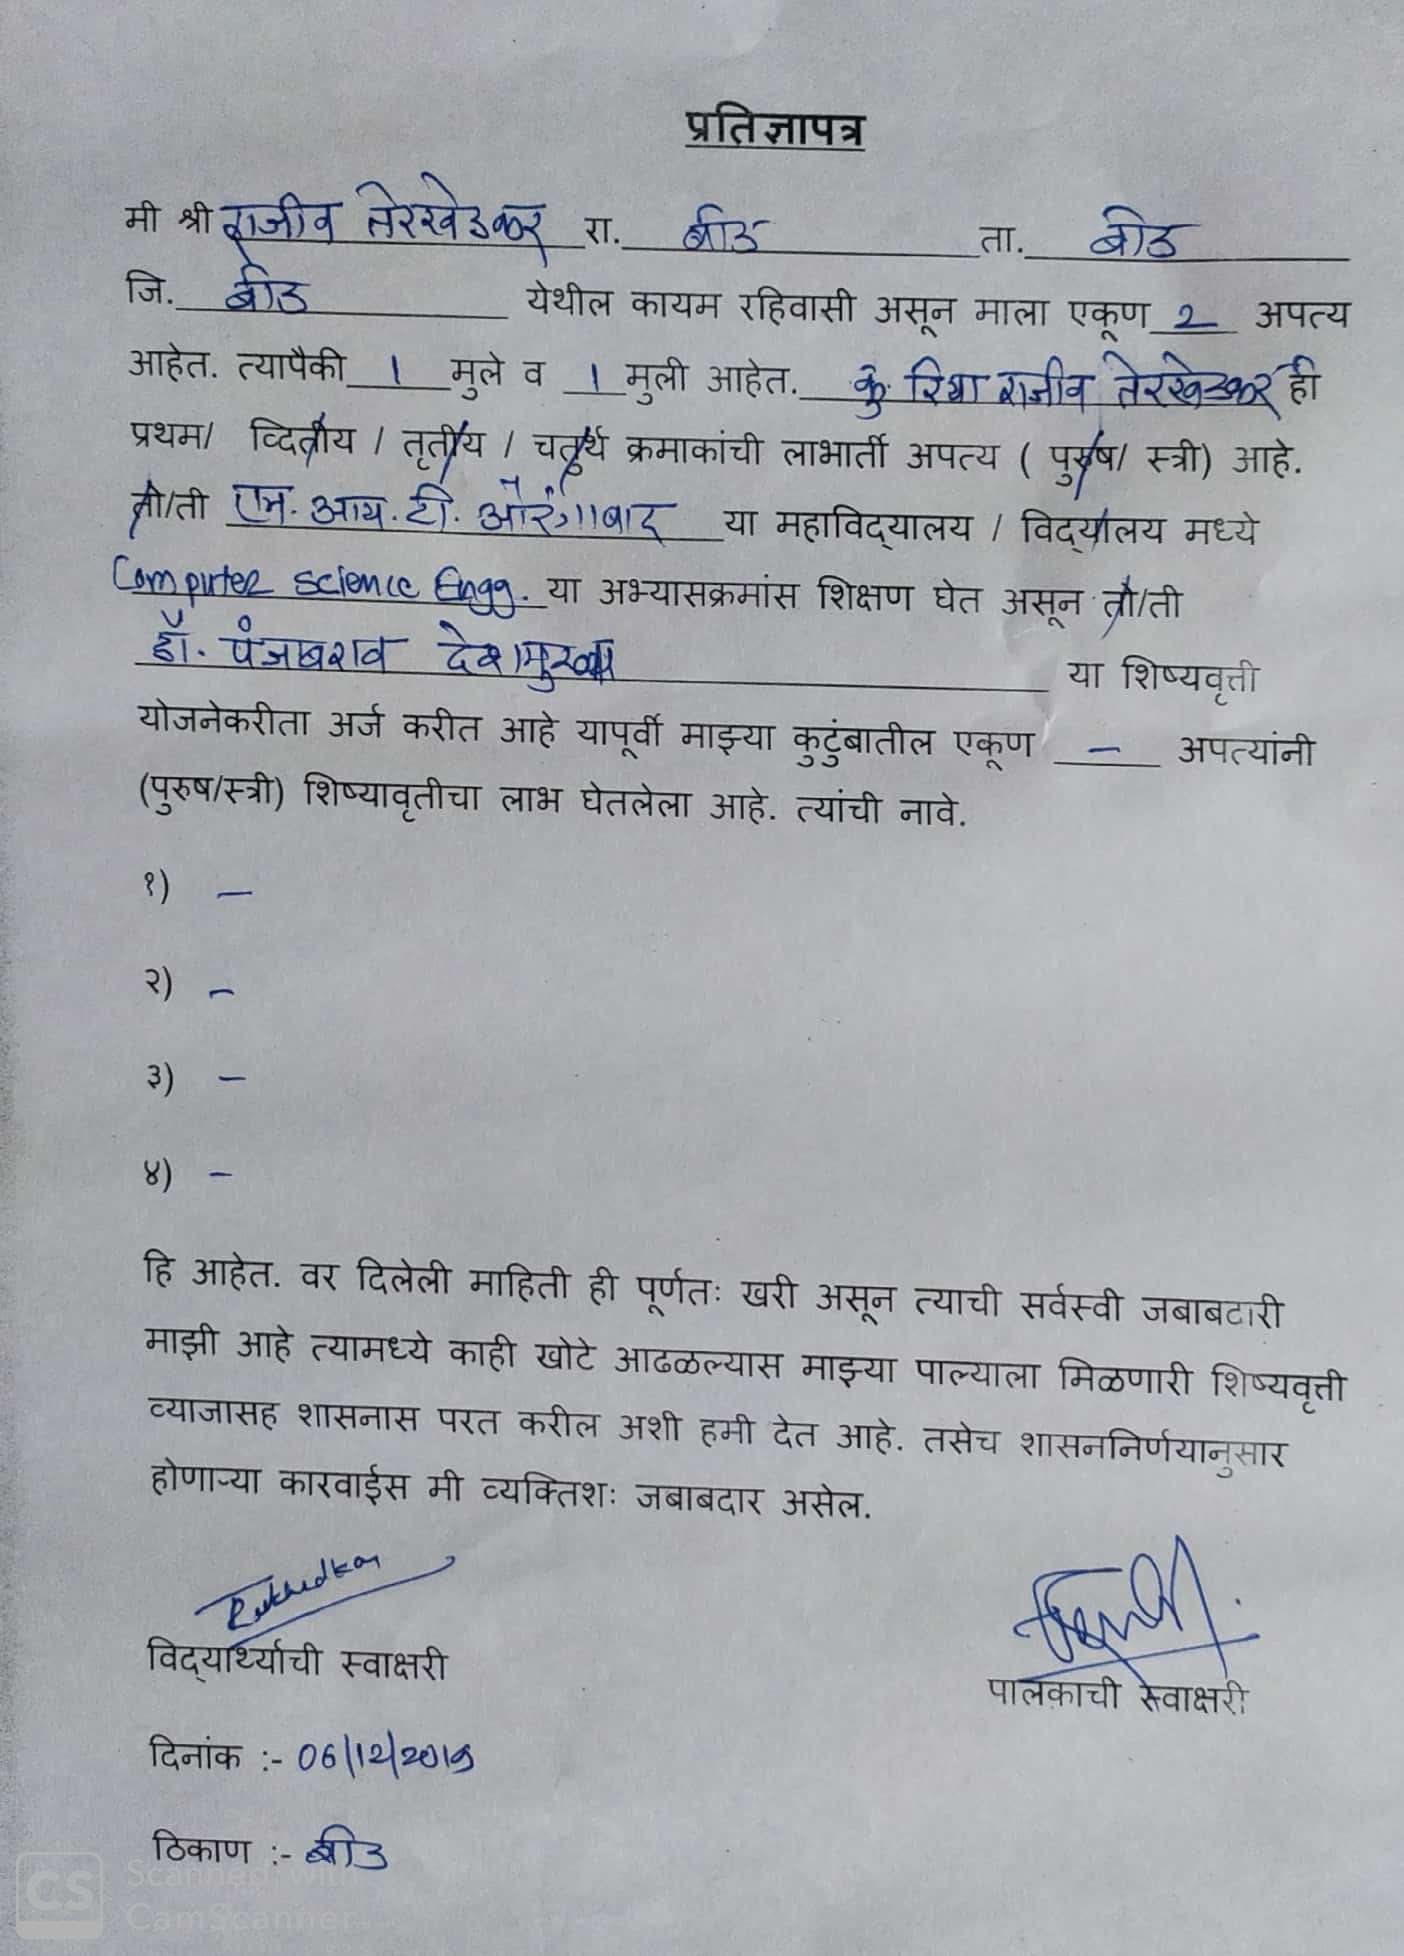 प्रतिज्ञापत्र
मी श्री राजीव तेरखेडकर रा. बीड ता. बीड
जि. बीड येथील कायम रहिवासी असून माला एकूण 2 अपत्य
आहेत. त्यापैकी 1 मुले व 1 मुली आहेत. कु. रिया राजीव तेरखेडकर ही
प्रथम/ व्दितीय / तृतीय / चतुर्थ क्रमाकांची लाभार्ती अपत्य ( पुरुष/ स्त्री) आहे.
तो/ती एम. आय. टी. औरंगाबाद या महाविद्यालय / विद्यालय मध्ये
Computer Science Engg. या अभ्यासक्रमांस शिक्षण घेत असून तो/ती
डॉ. पंजाबराव देशमुख या शिष्यवृत्ती
योजनेकरीता अर्ज करीत आहे यापूर्वी माझ्या कुटुंबातील एकूण – अपत्यांनी
(पुरुष/स्त्री) शिष्यावृतीचा लाभ घेतलेला आहे. त्यांची नावे.
१) –
२) –
३) –
४) –
हि आहेत. वर दिलेली माहिती ही पूर्णतः खरी असून त्याची सर्वस्वी जबाबटारी
माझी आहे त्यामध्ये काही खोटे आढळल्यास माझ्या पाल्याला मिळणारी शिष्यवृत्ती
व्याजासह शासनास परत करील अशी हमी देत आहे. तसेच शासननिर्णयानुसार
होणाऱ्या कारवाईस मी व्यक्तिशः जबाबदार असेल.
विद्यार्थ्याची स्वाक्षरी
पालकाची स्वाक्षरी
दिनांक :- 06/12/2019
ठिकाण :- बीड
CS Scanned with
CamScanner